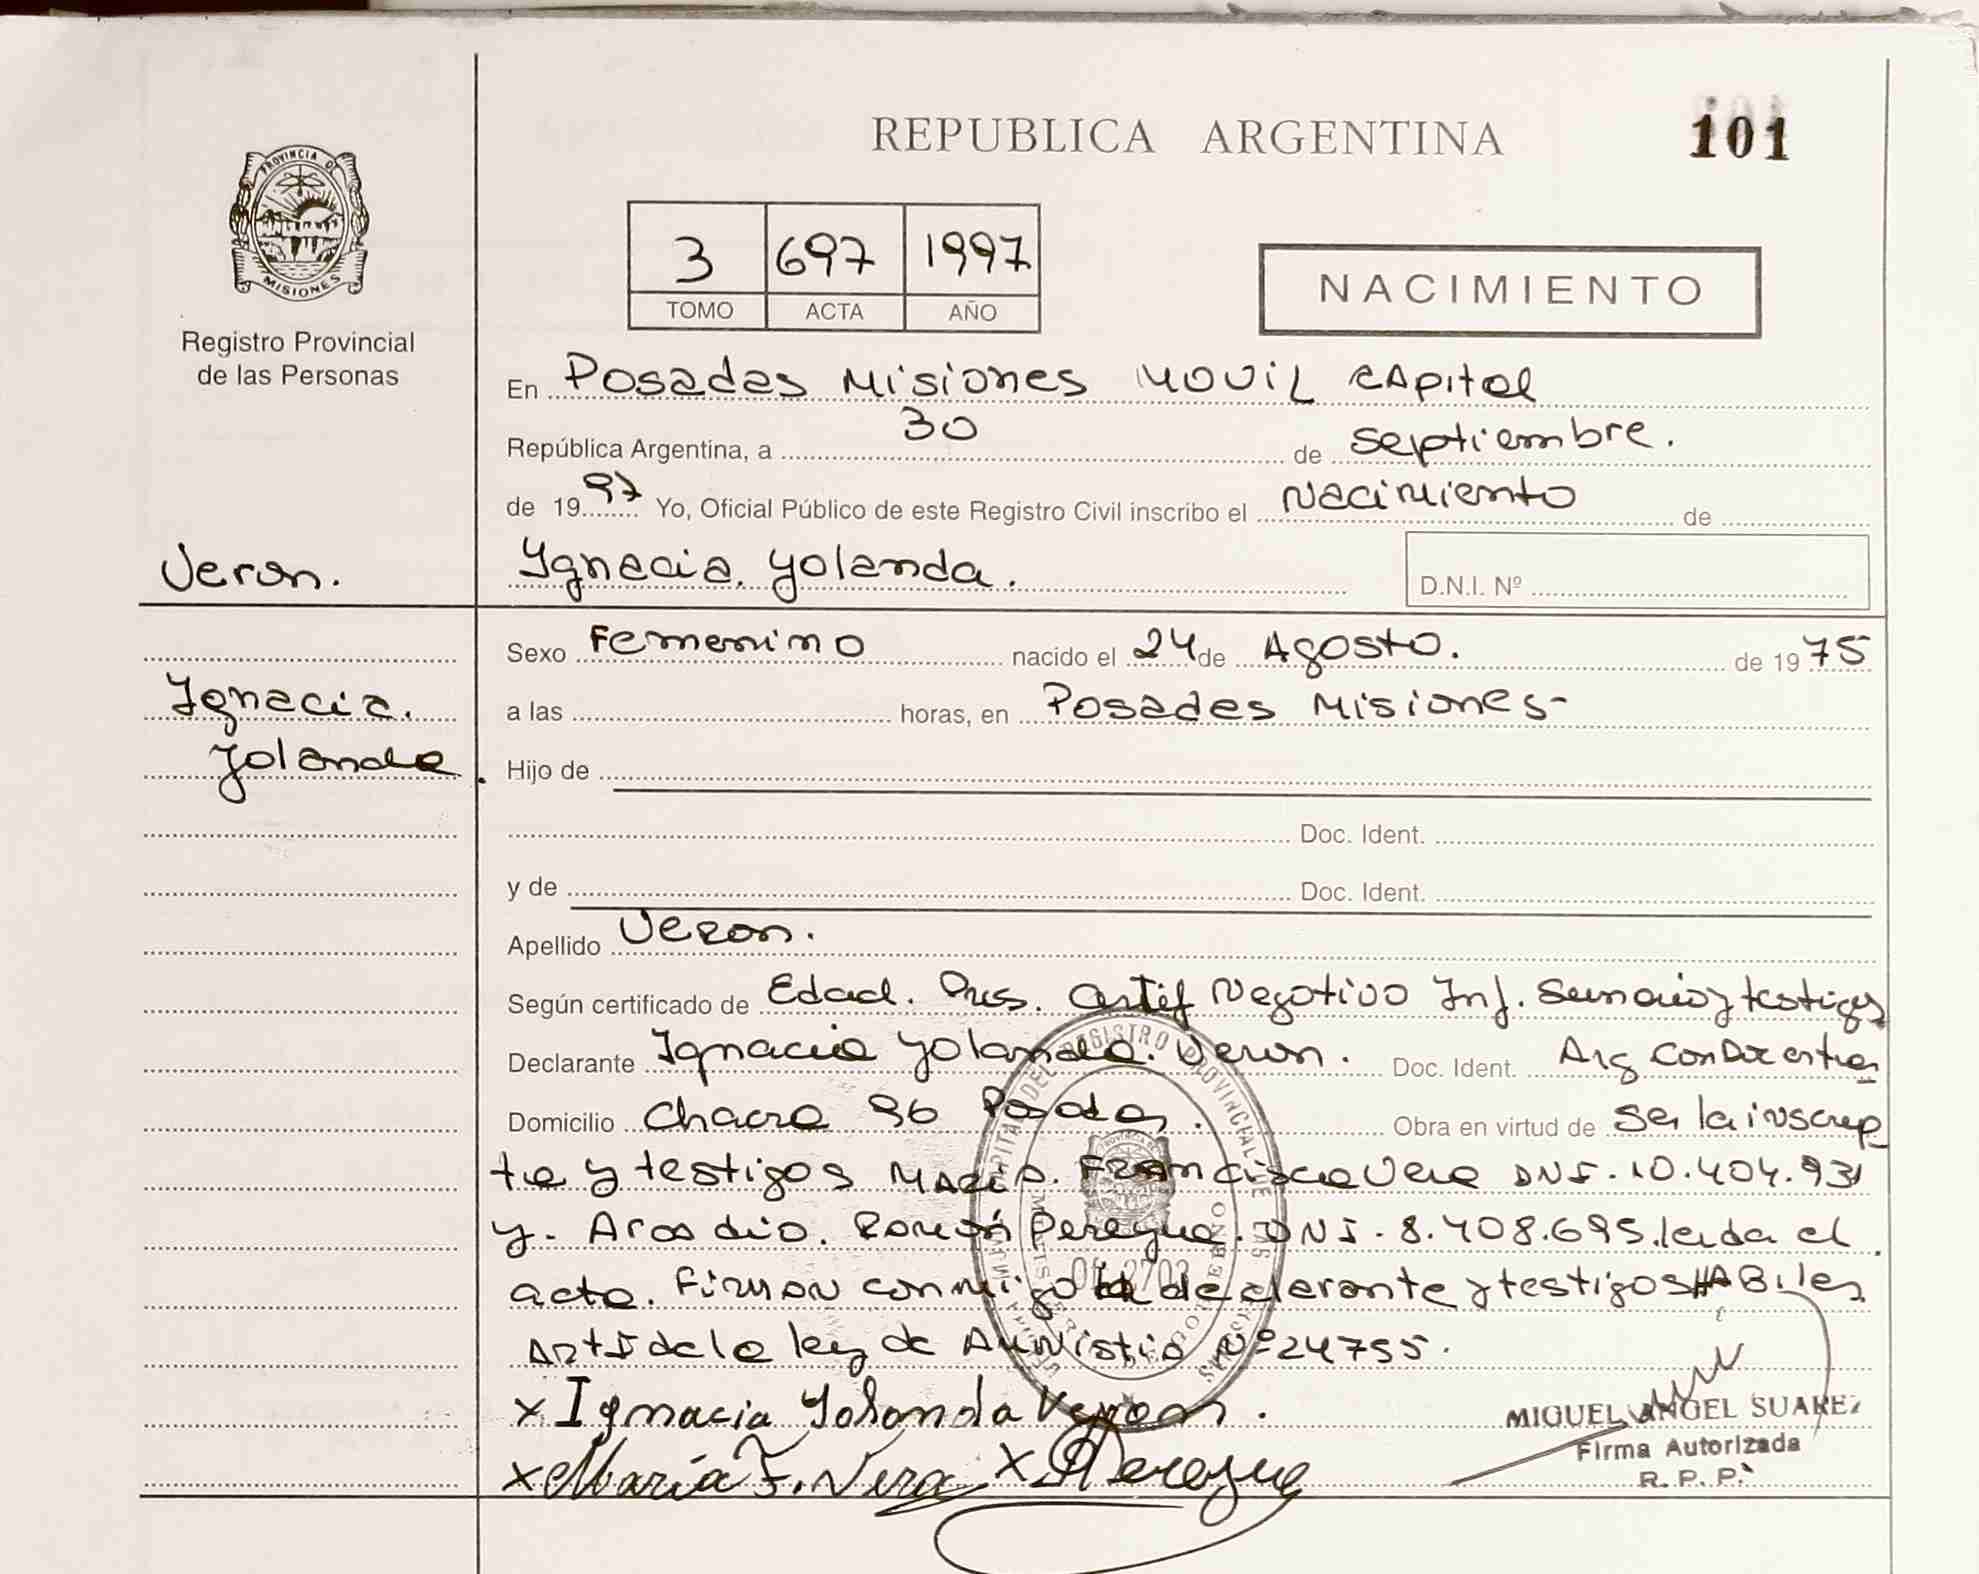 REPUBLICA ARGENTINA
101
PROVINCIA DE
MISIONES
Registro Provincial
de las Personas
3 697 1997
TOMO ACTA AÑO
NACIMIENTO
En Posadas Misiones Movil Capital
República Argentina, a 30 de septiembre.
de 1997 Yo, Oficial Público de este Registro Civil inscribo el Nacimiento de
Veron.
Ygnacia. Yolanda.
D.N.I. Nº
Ygnacia.
Yolanda.
Sexo Femenino nacido el 24 de Agosto. de 1975
a las horas, en Posadas Misiones-
Hijo de
Doc. Ident.
y de Doc. Ident.
Apellido Veron.
Según certificado de Edad. Pres. Certif Negativo Inf. Sumario y testigos
Declarante Ygnacia Yolanda. Veron. Doc. Ident. Arg Con Doc en tra
Domicilio Chacra 96 Posadas. Obra en virtud de Ser la inscrip
ta y testigos Maria. Francisca Vera DNI. 10.404.931
y. Arcadio. Ramón Pereyra. DNI. 8.408.695. leida el
acta. Firman conmigo la declarante y testigos HABiles
Art 5 de la ley de Amnistia Nº 24755.
x Ignacia Yolanda Veron.
x Maria F. Vera x Pereyra
MIGUEL ANGEL SUAREZ
Firma Autorizada
R. P. P.